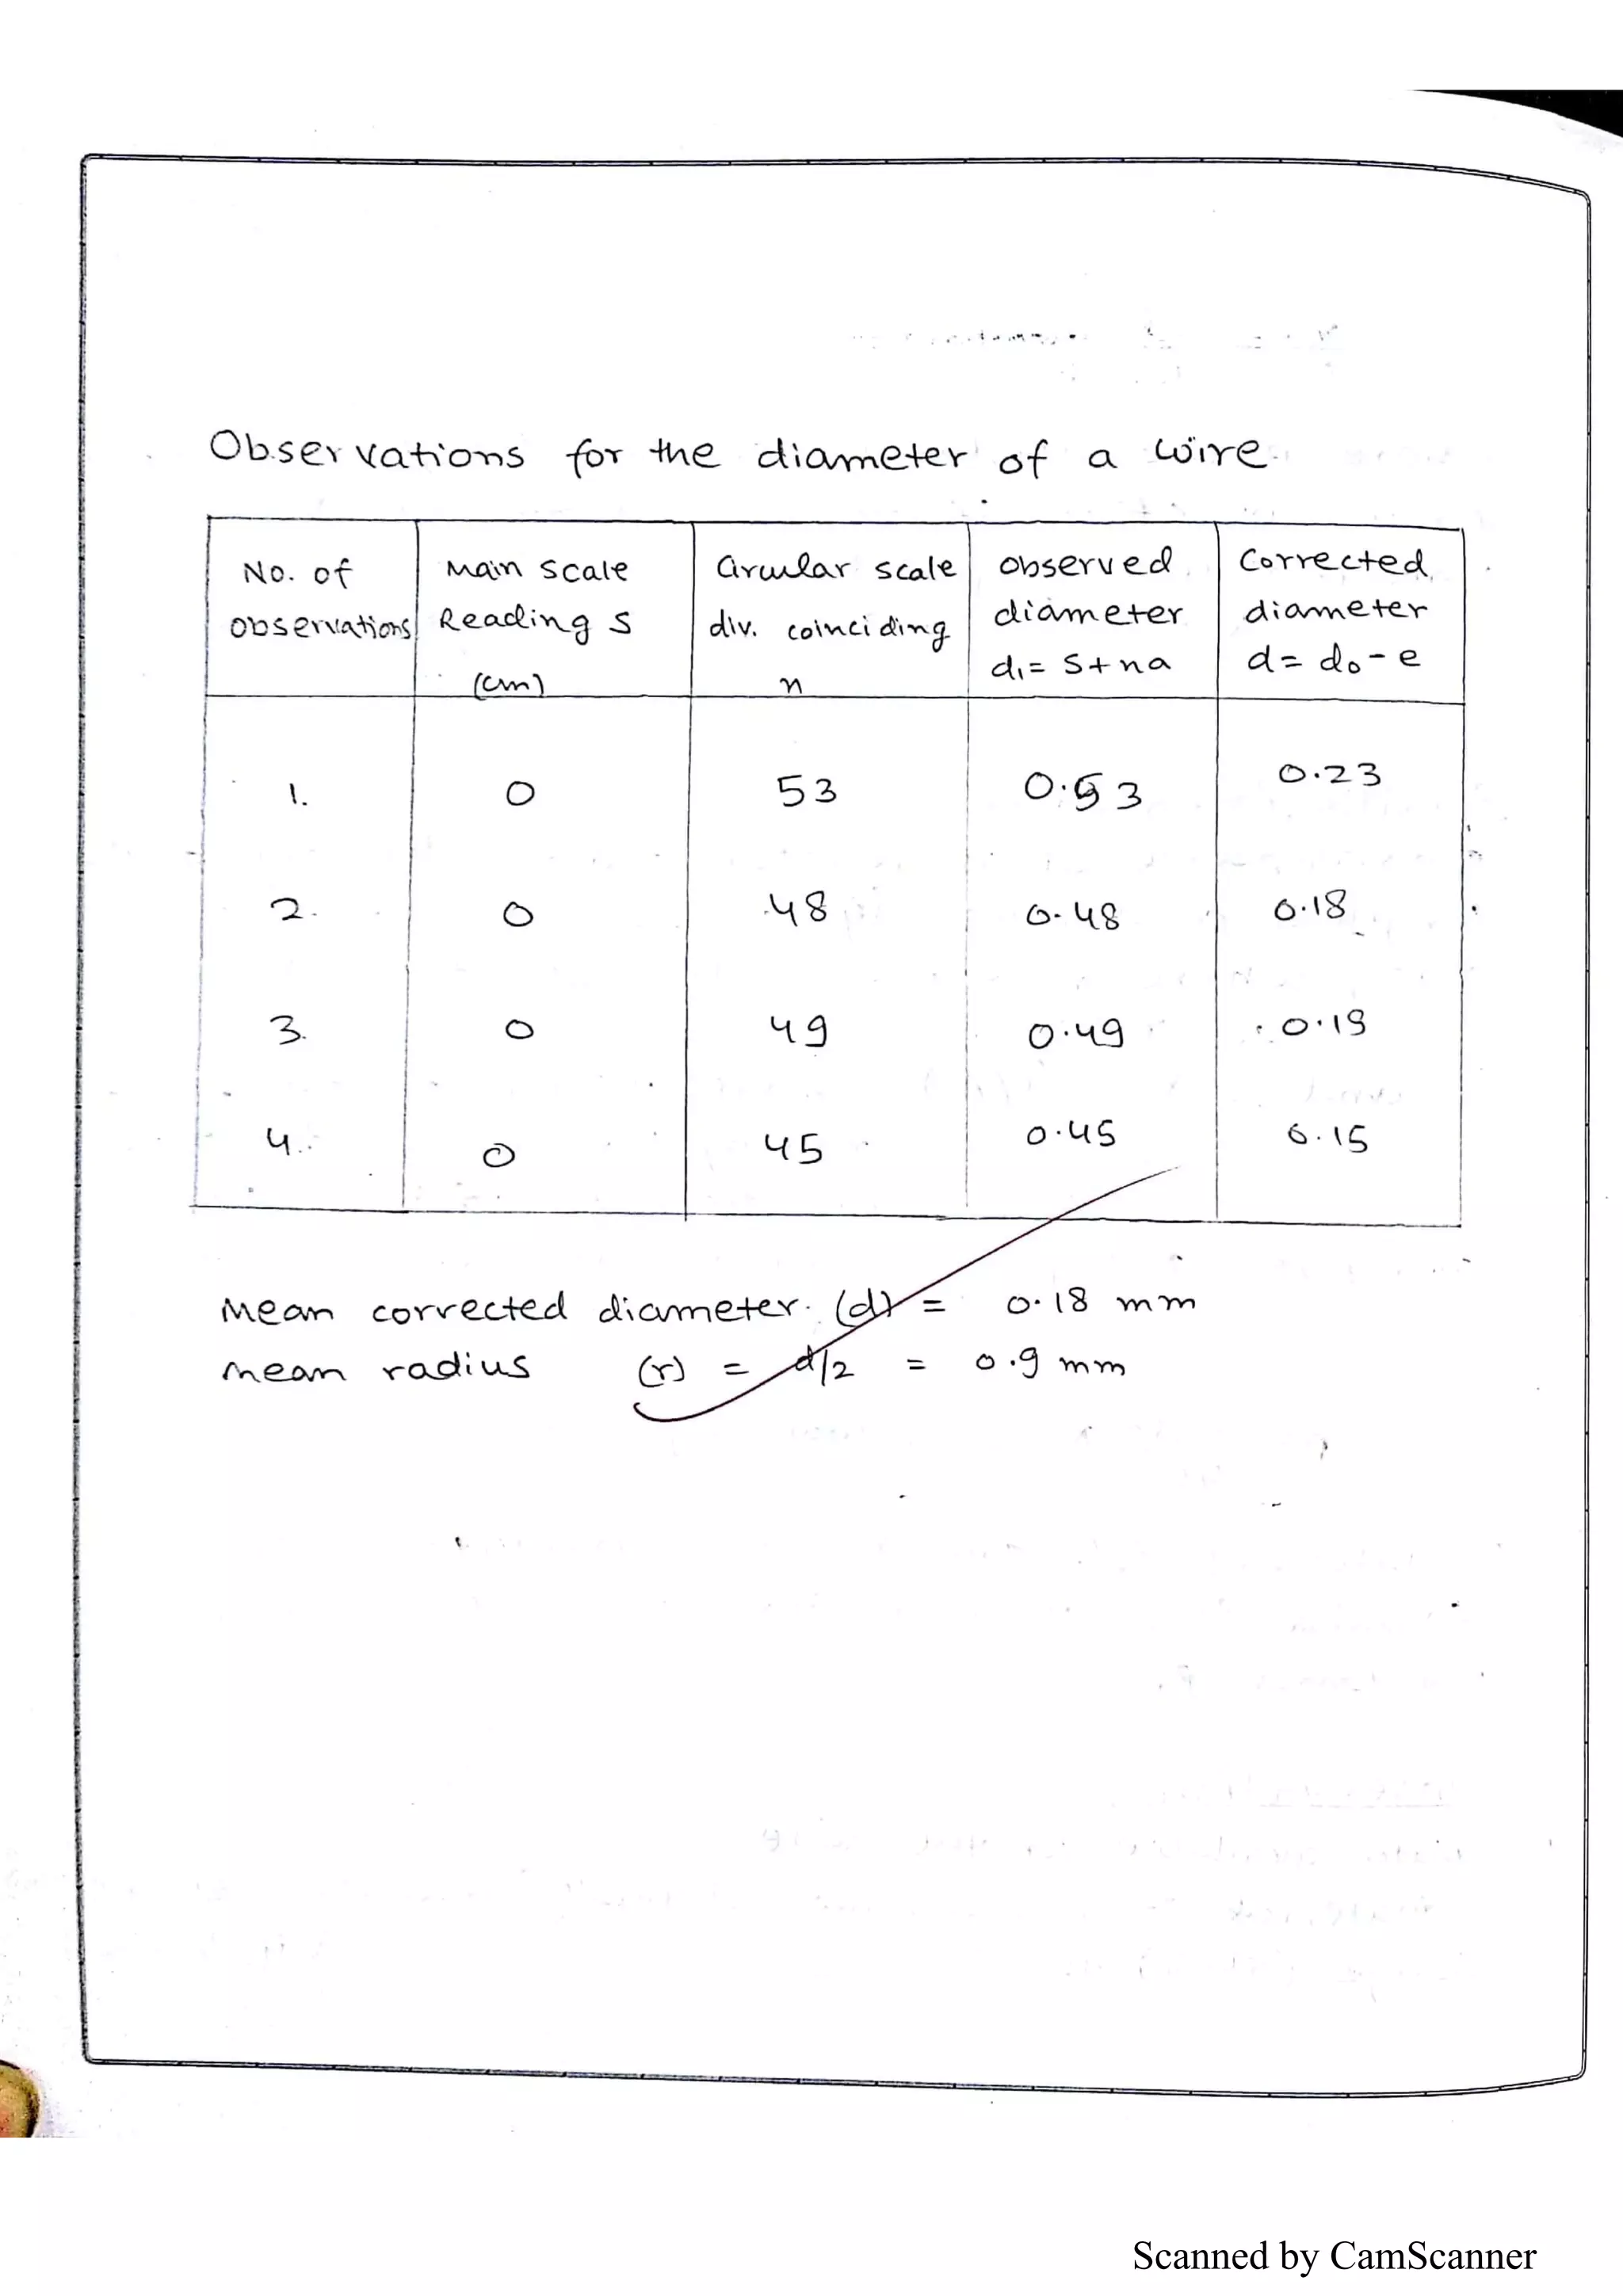 Observations for the diameter of a wire
No. of observations Main scale Reading S (cm) Circular scale div. coinciding n Observed diameter d₁ = S + na Corrected diameter d = d₀ - e
1. 0 53 0.53 0.23
2. 0 48 0.48 0.18
3. 0 49 0.49 0.19
4. 0 45 0.45 0.15
Mean corrected diameter (d) = 0.18 mm
Mean radius (r) = d/2 = 0.9 mm
Scanned by CamScanner